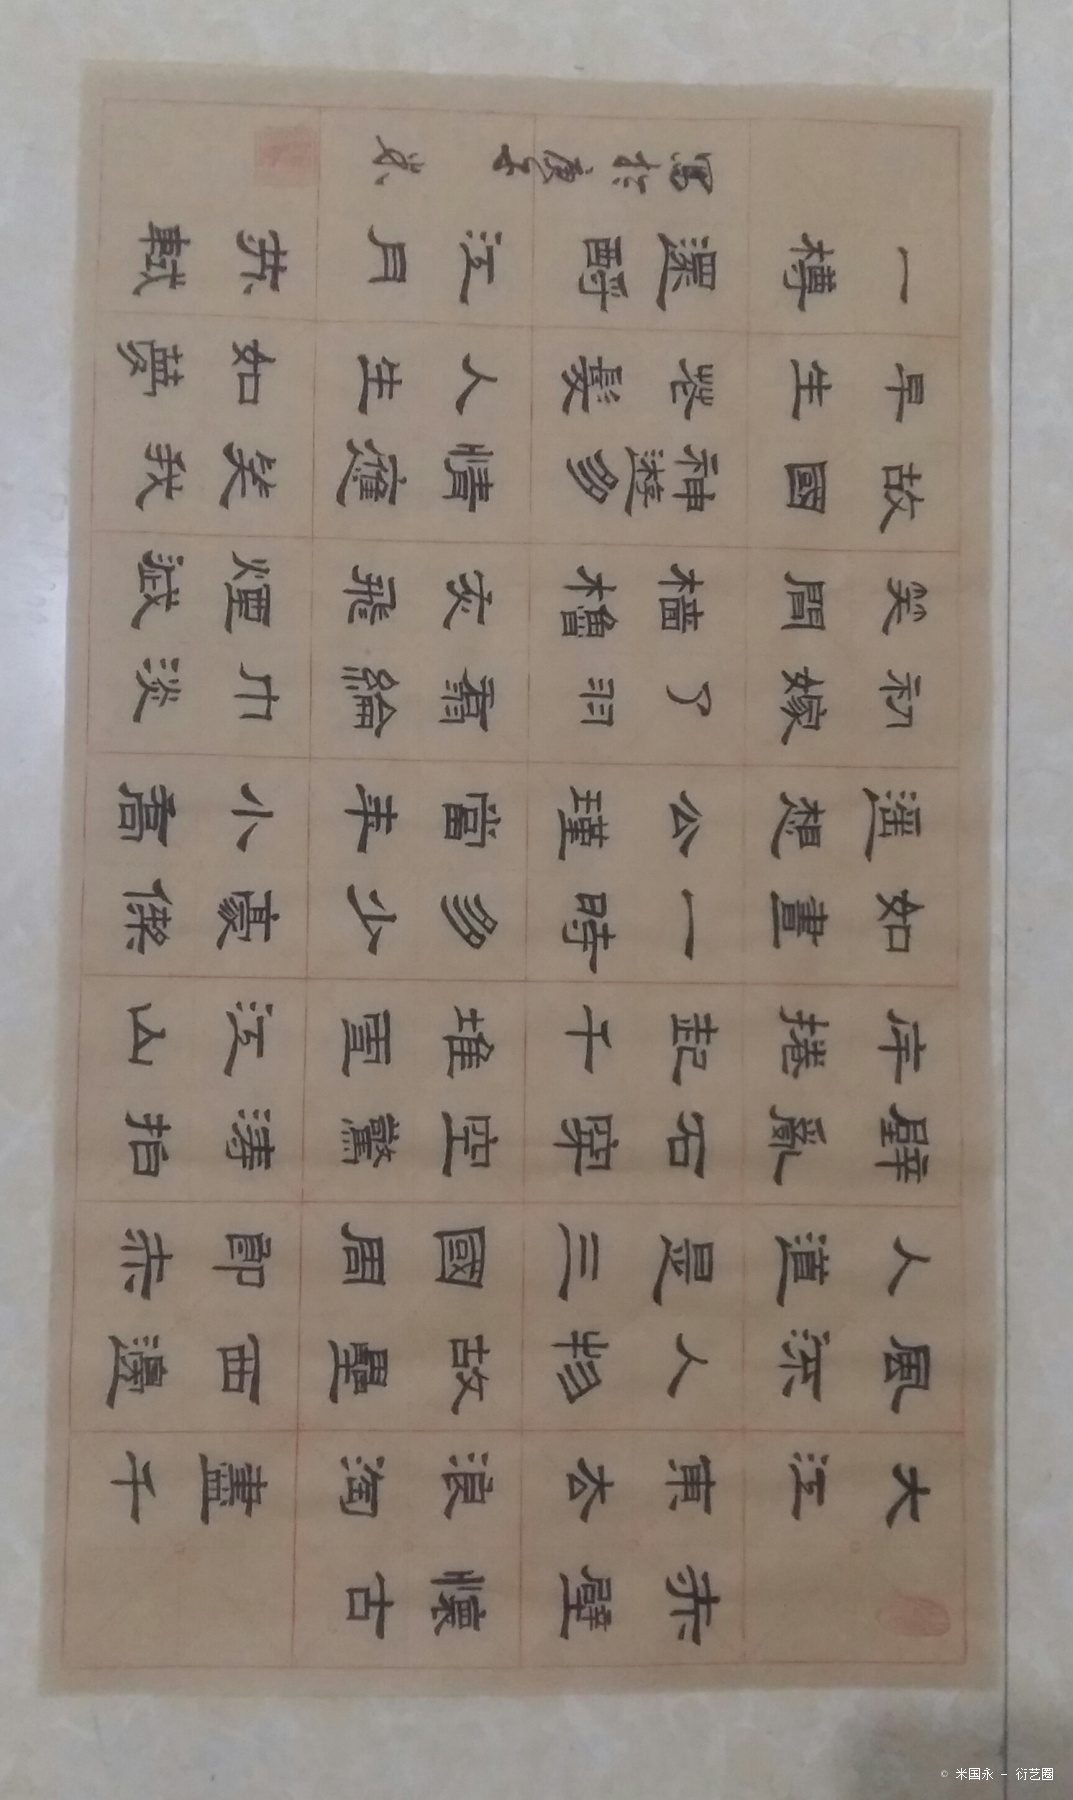 赤壁懷古
大江東去浪淘盡千
風流人物故壘西邊
人道是三國周郎赤
壁亂石穿空驚濤拍
岸捲起千堆雪江山
如畫一時多少豪傑
遙想公瑾當年小喬
初嫁了羽扇綸巾淡
笑間檣櫓灰飛煙滅
故國神遊多情應笑我
早生華髮人生如夢
一樽還酹江月蘇軾
寫於庚子
© 米国永 - 衍艺圈